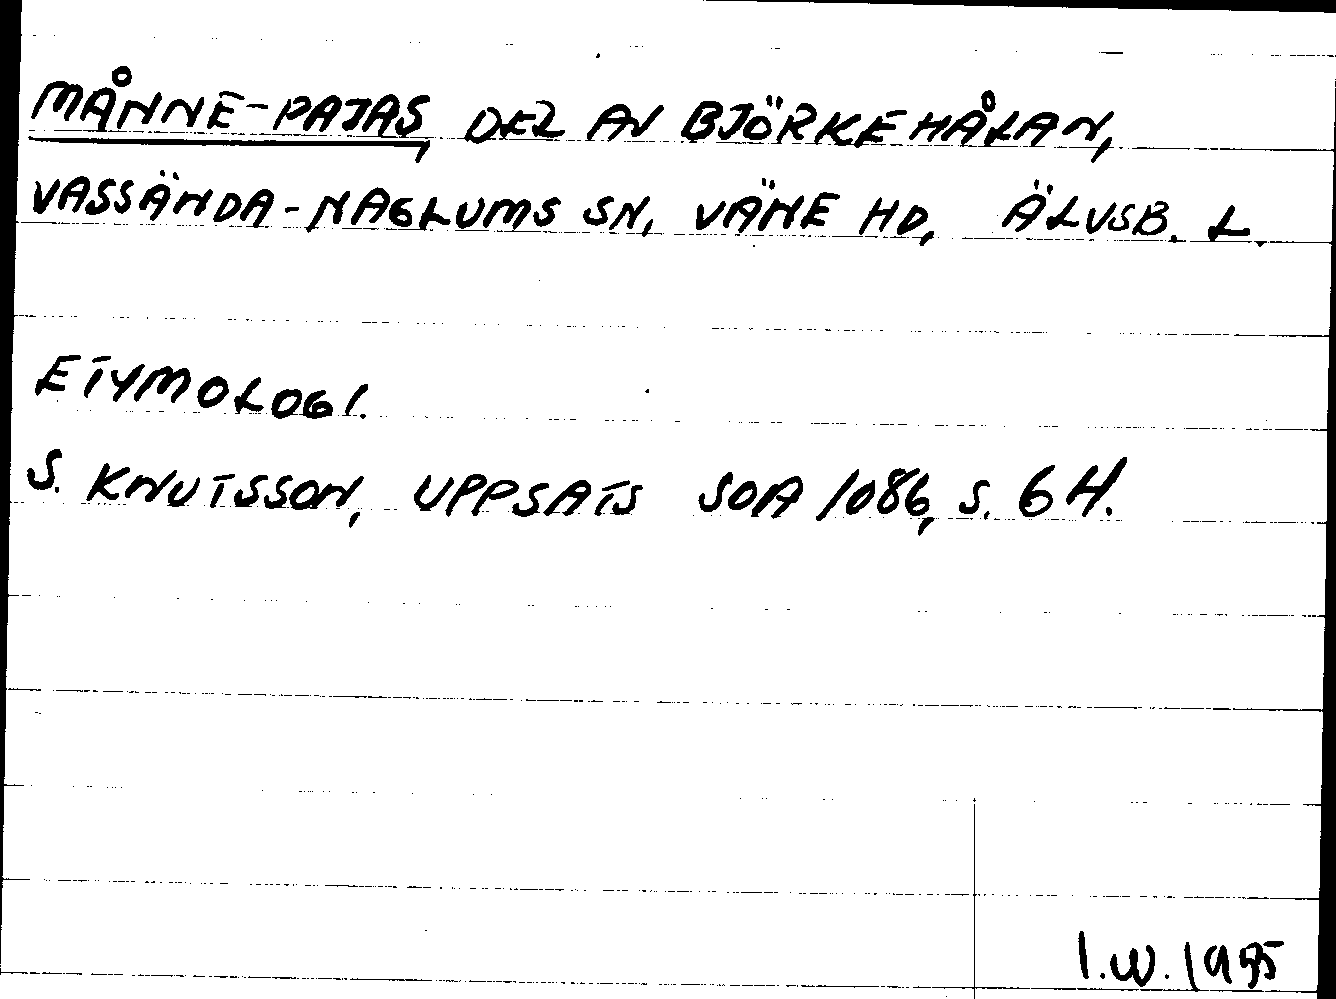 MÅNNE-PAJAS, DEL AV BJÖRKEHÅLAN,
VASSÄNDA-NAGLUMS SN, VÄNE HD, ÄLVSB. L.
ETYMOLOGI.
S. KNUTSSON, UPPSATS SOA 1086, S. 64.
I.W. 1955